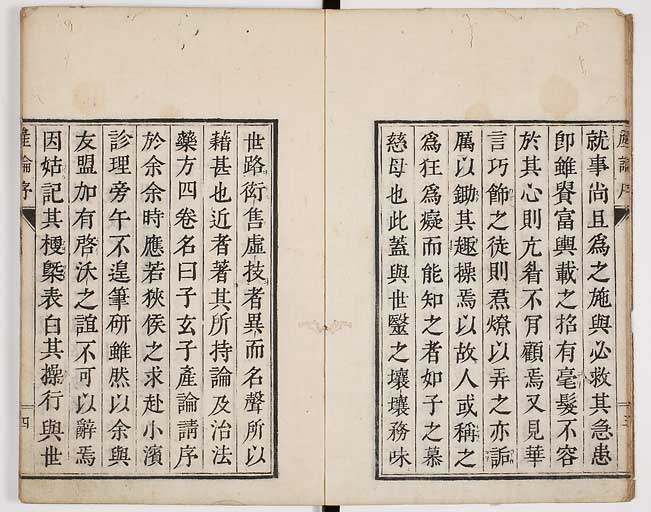 就事尚且為之施與必救其急患
卽雖賢富輿載之招有毫髮不容
於其心則亢眥不肎顧焉又見華
言巧飾之徒則焄燎以弄之亦詬
厲以鋤其趣操焉以故人或稱之
為狂為癡而能知之者如子之慕
慈母也此蓋與世毉之壤壤務味
世路衒售虛技者異而名聲所以
藉甚也近者著其所持論及治法
藥方四卷名曰子玄子產論請序
於余余時應若狹侯之求赴小濱
診理旁午不遑筆研雖然以余與
友盟加有啓沃之誼不可以辭焉
因姑記其梗槩表白其操行與世
產論序
四